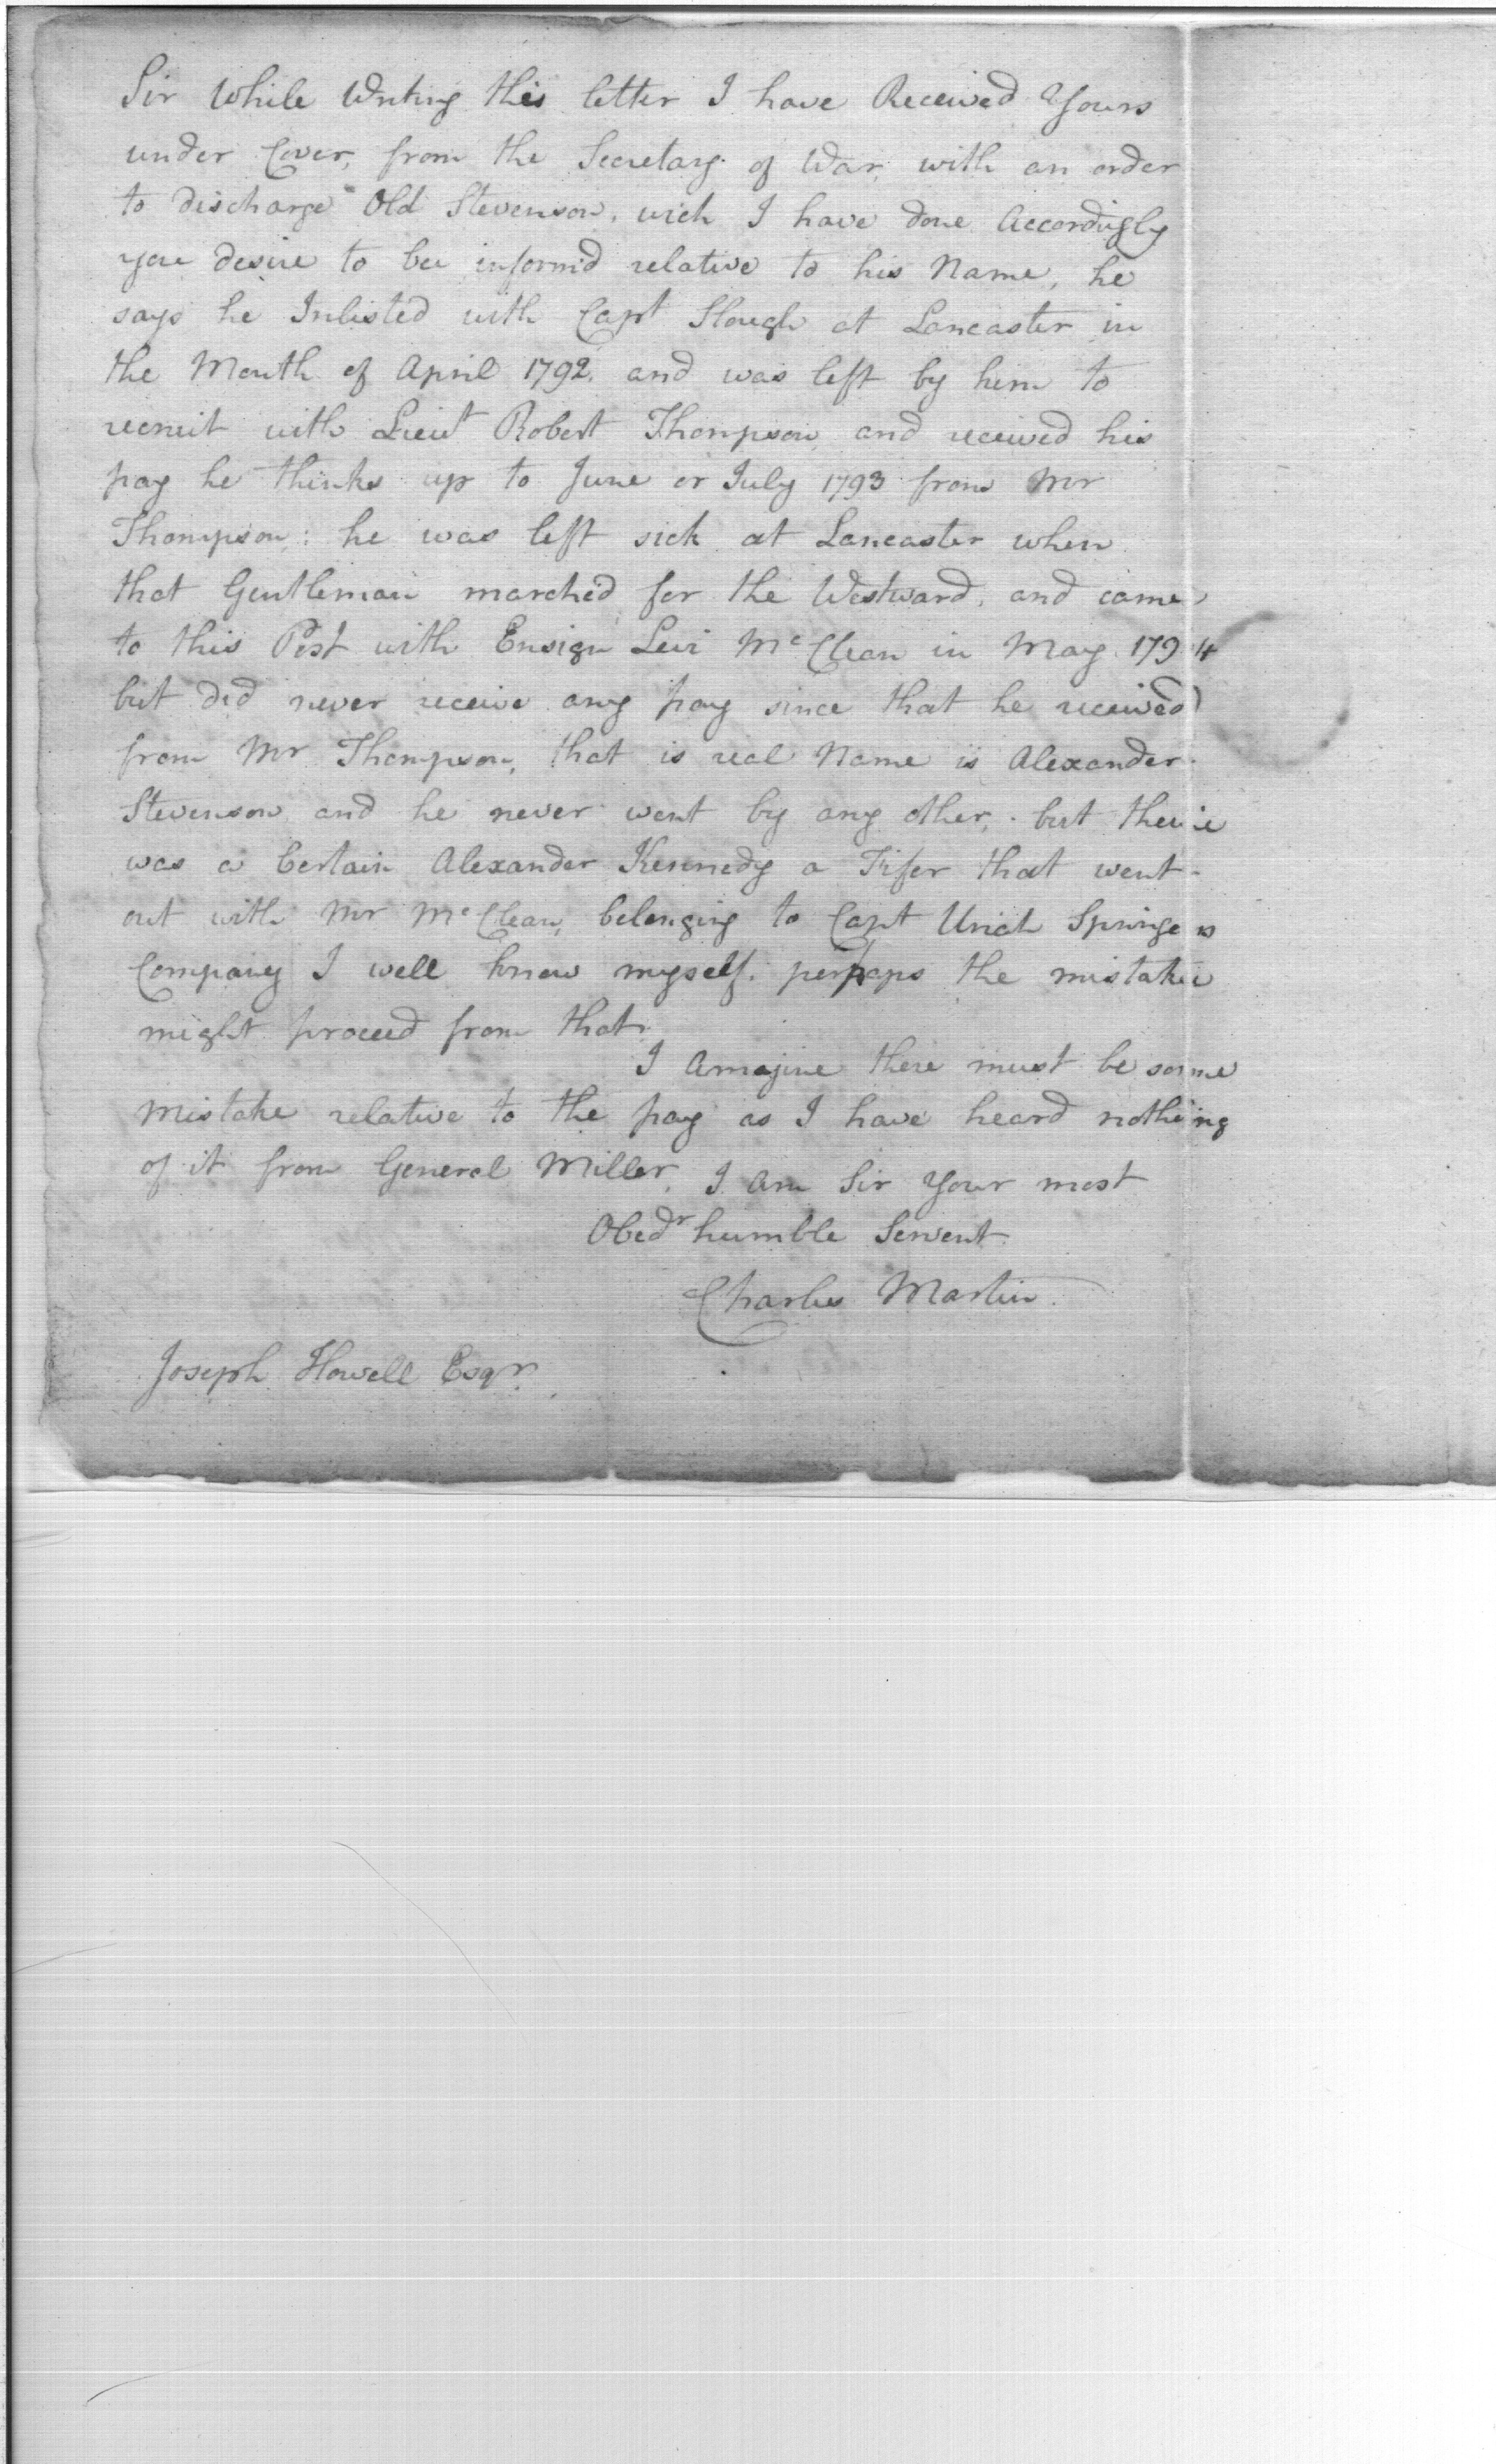 Sir While Writing this letter I have Received Yours
under Cover, from the Secretary of War, with an order
to discharge Old Stevenson, wich I have done Accordingly
you desire to bee informd relative to his Name, he
says he Inlisted with Capt Slough at Lancaster in
the Month of April 1792. and was left by him to
recruit with Lieut Robert Thompson and received his
pay he thinks up to June or July 1793 from Mr
Thompson; he was left sick at Lancaster when
that Gentleman march'd for the Westward, and came
to this Post with Ensign Levi McClean in May 1794
but did never receive any pay since that he received
from Mr Thompson, that is real Name is Alexander
Stevenson and he never went by any other, but there
was a Certain Alexander Kennedy a Fifer that went
out with Mr McClean, belonging to Capt Uriah Springes
Company I well knew myself. perhaps the mistake
might proceed from that.
I Amajine there must be some
Mistake relative to the pay as I have heard nothing
of it from General Miller, I Am Sir Your most
Obedr humble Servent
Charles Martin
Joseph Howell Esqr.